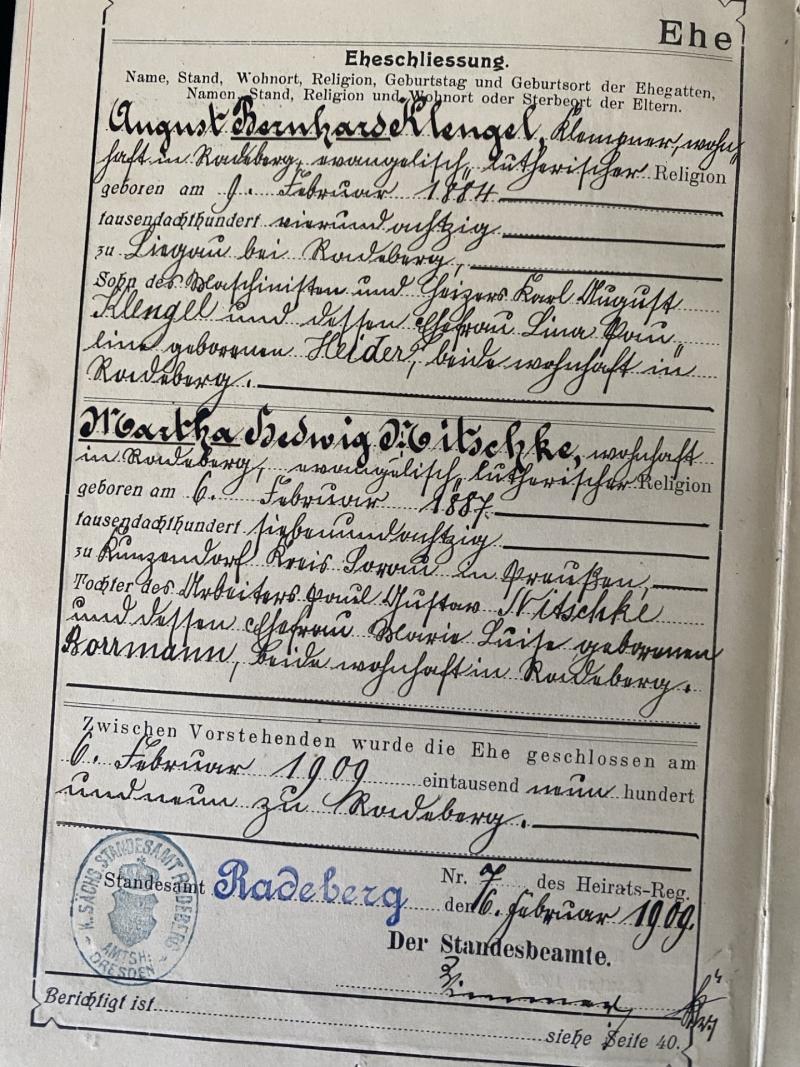 Ehe
Eheschliessung.
Name, Stand, Wohnort, Religion, Geburtstag und Geburtsort der Ehegatten,
Namen, Stand, Religion und Wohnort oder Sterbeort der Eltern.
August Bernhard Klengel, Klempner, wohn„
haft in Radeberg, evangelisch„lutherischer Religion
geboren am 9. Februar 1884
tausendachthundert vierundachtzig
zu Liegau bei Radeberg,
Sohn des Maschinisten und Heizers Karl August
Klengel und dessen Ehefrau Lina Pau„
line geborenen Heider, beide wohnhaft in
Radeberg.
Martha Hedwig Nitschke, wohnhaft
in Radeberg, evangelisch„lutherischer Religion
geboren am 6. Februar 1887
tausendachthundert siebenundachtzig
zu Kunzendorf Kreis Sorau in Preußen,
Tochter des Arbeiters Paul Gustav Nitschke
und dessen Ehefrau Marie Luise geborenen
Borrmann, beide wohnhaft in Radeberg.
Zwischen Vorstehenden wurde die Ehe geschlossen am
6. Februar 1909 eintausend neun hundert
und neun zu Radeberg.
K. SÄCHS. STANDESAMT RADEBERG
AMTSH: DRESDEN
Standesamt Radeberg Nr. 7 des Heirats-Reg.
den 6. Februar 1909.
Der Standesbeamte.
Berichtigt ist
siehe Seite 40.